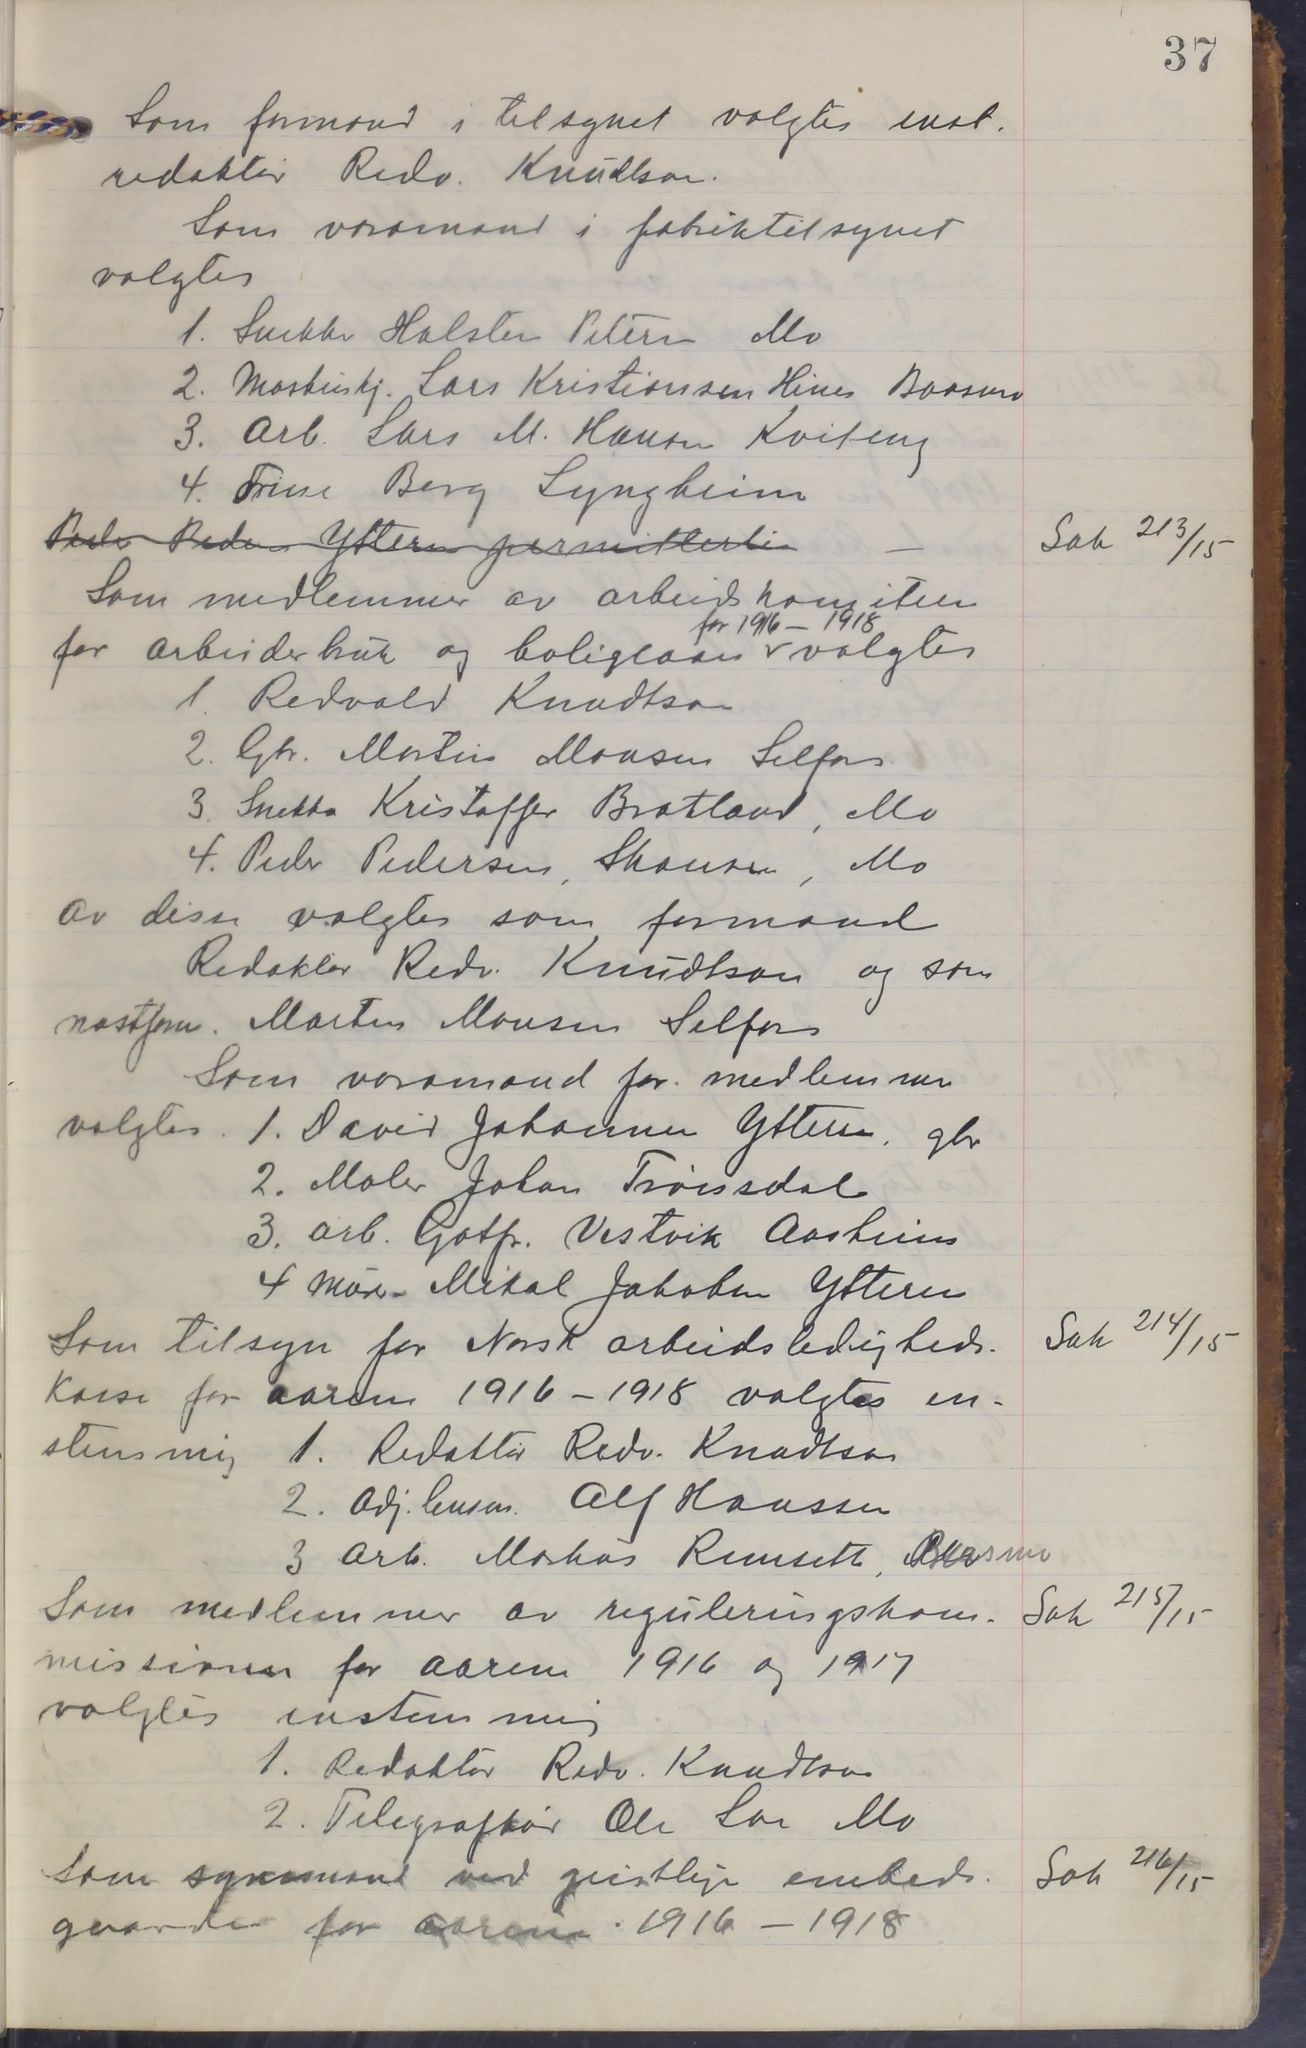 37
Som formand i tilsynet valgtes enst.
redaktör Redv. Knudtson.
Som varamænd i fabriktilsynet
valgtes
1. Snekker Halsten Peters Mo
2. Maskinskj. Lars Kristiansen Baasmo
3. Arb. Lars M. Hansen Kviteng
4. Trine Berg Lyngheim
Peder Peders Ytteren
Sak 213/15
Som medlemmer av arbeidskomiteen
for 1916 – 1918
for arbeiderbruk og boliglaan valgtes
1. Redvald Knudtson
2. Gbr. Martin Monsen Selfors
3. Snekker Kristoffer Bratland, Mo
4. Peder Pedersen, Skansen, Mo
Av disse valgtes som formand
Redaktör Redv. Knudtson og som
næstform. Martin Monsen Selfors
Som varamænd for medlemmer
valgtes. 1. David Johannesen Ytteren, gbr
2. Maler Johan Trönsdal
3. arb. Gotfr. Vestvik Aasheim
4 Mikal Jakobsen Ytteren
Som tilsyn for Norsk arbeidsledigheds-
Sak 214/15
kasse for aarene 1916 – 1918 valgtes en-
stemmig 1. Redaktör Redv. Knudtson
2. Adj. lensm. Alf Hanssen
3 Arb. Markus Remseth, Baasmo
Som medlemmer av reguleringskom-
Sak 215/15
missionen for aarene 1916 og 1917
valgtes enstemmig
1. Redaktör Redv. Knudtson
2. Telegrafbör Ole Mo
Som synsmænd ved geistlige embeds-
Sak 216/15
gaarder for aarene 1916 – 1918